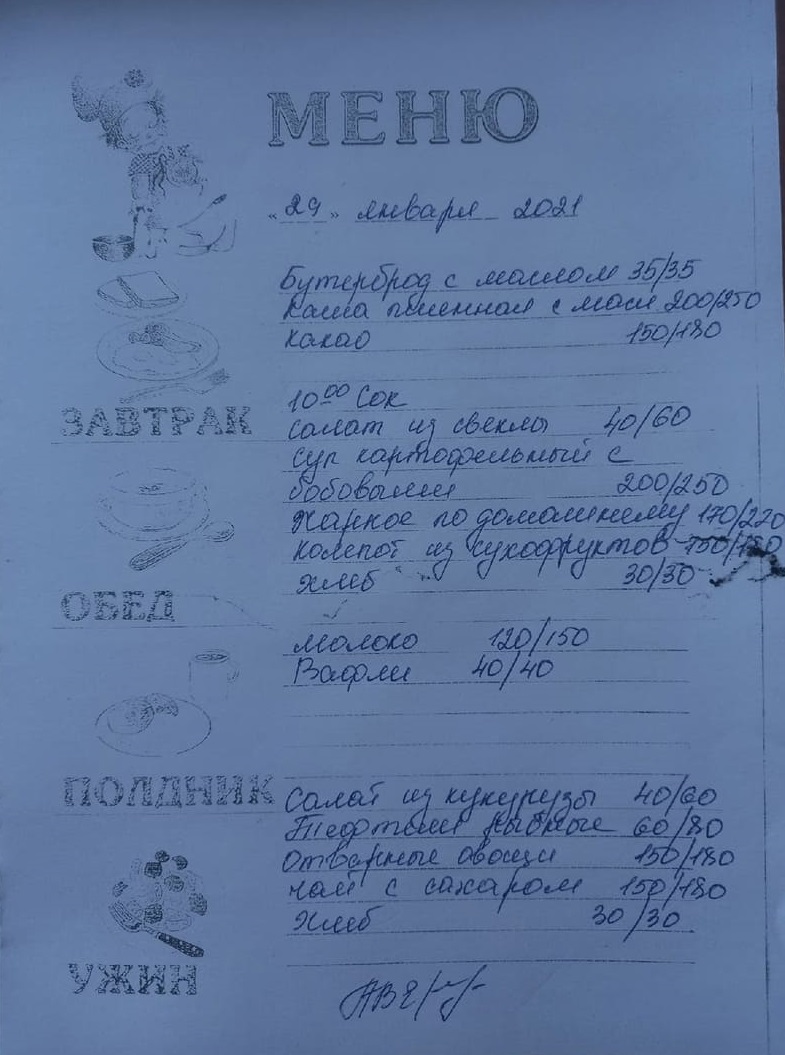 МЕНЮ
„29" января 2021
Бутерброд с маслом 35/35
Каша пшенная с масл 200/250
Какао 150/180
10⁰⁰ Сок
ЗАВТРАК
Салат из свеклы 40/60
Суп картофельный с
бобовыми 200/250
Жаркое по домашнему 170/220
Компот из сухофруктов 150/180
Хлеб 30/30
ОБЕД
Молоко 120/150
Вафли 40/40
ПОЛДНИК
Салат из кукурузы 40/60
Тефтели рыбные 60/80
Отварные овощи 150/180
Чай с сахаром 150/180
Хлеб 30/30
УЖИН